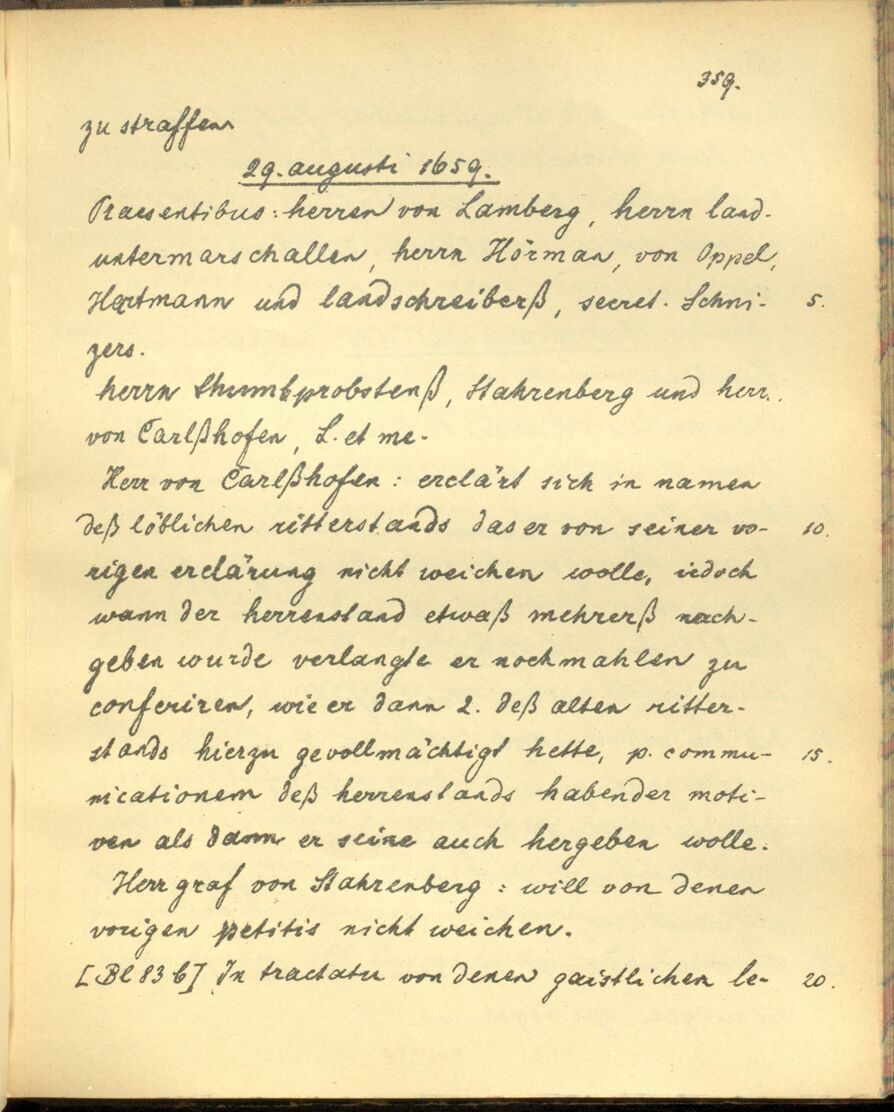 359.
zu straffen
29. augusti 1659.
Praesentibus: herren von Lamberg, herrn land-
untermarschallen, herrn Hörman, von Oppel,
Hartmann und landschreiberß, secret. Schni- 5.
zers.
herrn thumbprobstenß, Stahrenberg und herr
von Carlßhofen, L. et me.
Herr von Carlßhofen: erclärt sich in namen
deß löblichen ritterstands das er von seiner vo- 10.
rigen erclärung nicht weichen wolle, iedoch
wann der herrenstand etwaß mehrerß nach-
geben wurde verlangte er nochmahlen zu
conferiren, wie er dann 2. deß alten ritter-
stands hierzu gevollmächtigt hette, p. commu- 15.
nicationem deß herrenstands habender moti-
ven als dann er seine auch hergeben wolle.
Herr graf von Stahrenberg: will von denen
vorigen petitis nicht weichen.
[Bl 83 b] In tractatu von denen gaistlichen le- 20.